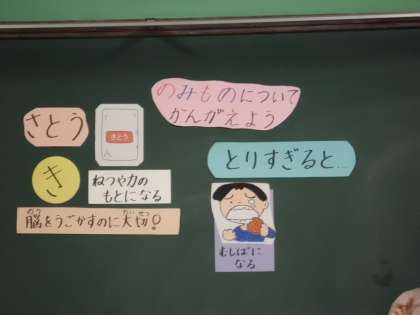 のみものについて
かんがえよう
さとう
さとう
き
ねつや力の
もとになる
脳をうごかすのに大切!
のう
たいせつ
とりすぎると…
むしばに
なる